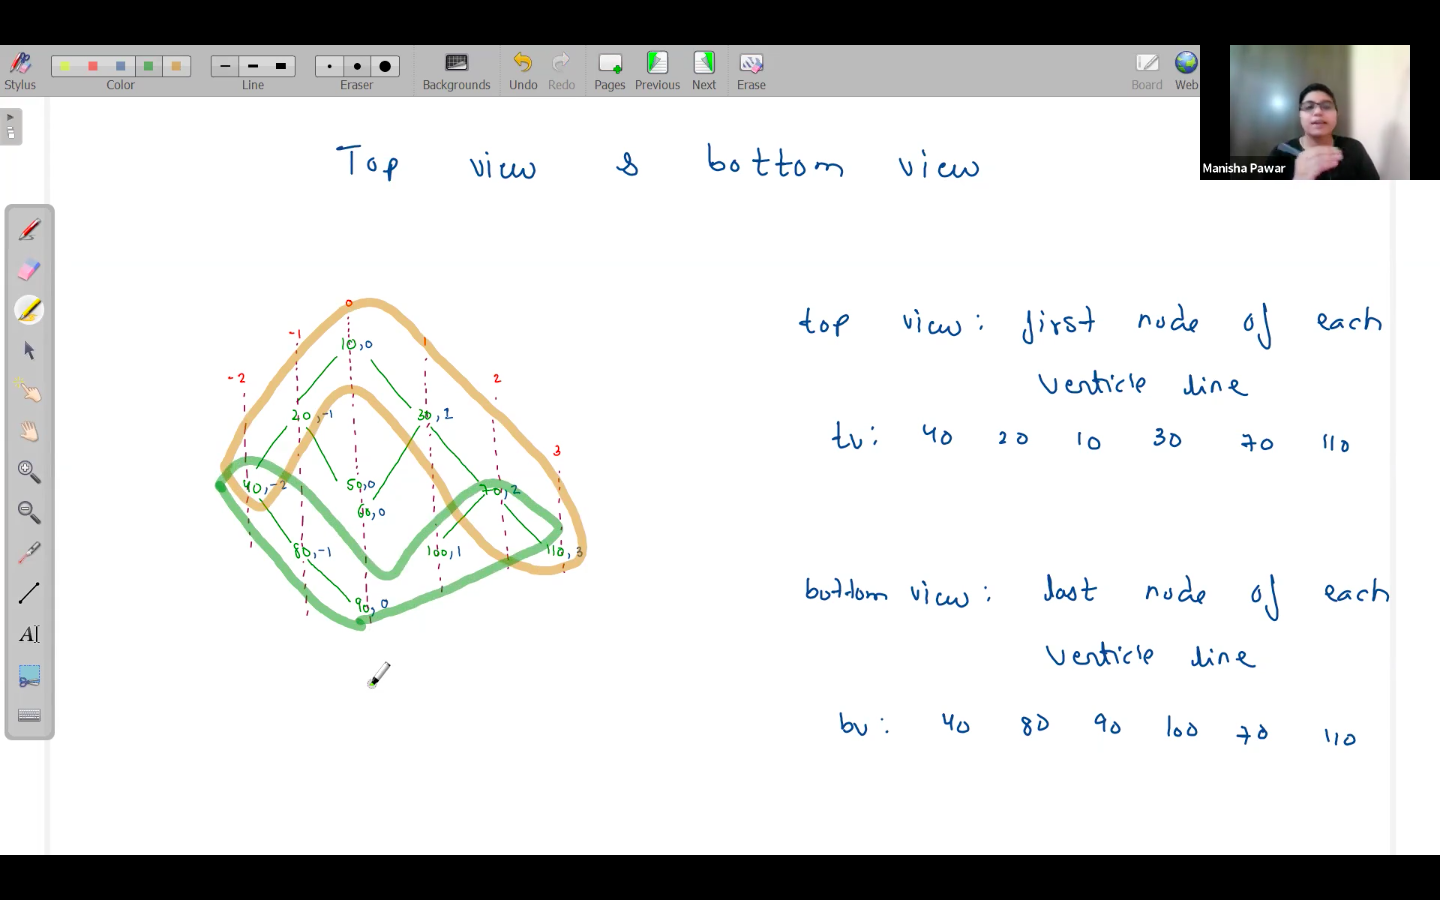 Stylus Color Line Eraser Backgrounds Undo Redo Pages Previous Next Erase Board Web
Manisha Pawar
Top view & bottom view
0
-1
10,0
1
-2
2
20,-1
30,1
3
40,-2
50,0
70,2
60,0
80,-1
100,1
110,3
90,0
top view: first node of each
verticle line
tv: 40 20 10 30 70 110
bottom view: last node of each
verticle line
bv: 40 80 90 100 70 110
A